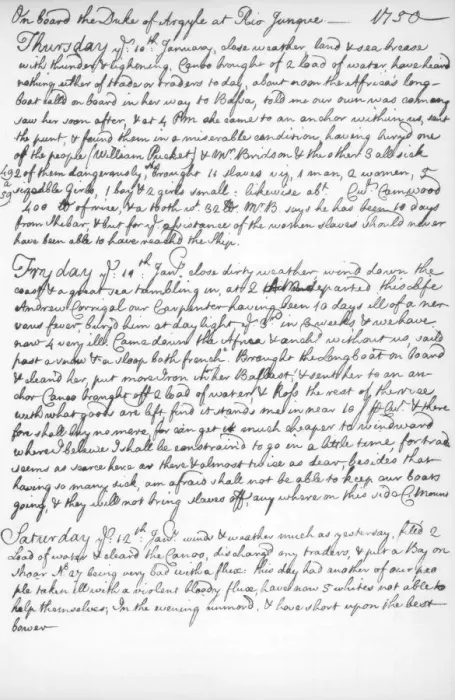 On board the Duke of Argyle at Rio Junque — 1750
Thursday ye. 10th. January, close weather land & sea breese
with thunder & lightening, Canoo brought off 2 load of water, have heard
nothing either of trade or traders to day, about noon the Africa's long-
boat call'd on board in her way to Bassa, told me our own was coming
saw her soon after, & at 4 PM she came to an anchor within us, sent
the punt, & found them in a miserable condition, having buryd one
of the people (William Pucket) & Mr. Bridson & the other 3 all sick
of them dangerously, They brought 11 slaves viz, 1 man, 2 women,
sizeable Girls, 1 boy & 2 girls small: likewise abt. Cwt. Camwood
400 lb of rice, & a tooth wt. 32 lb. Mr. B. says he has been 10 days
from the bar, & but for ye assistance of the women slaves should never
have been able to have reachd the ship.
Fryday ye. 11th. Jany. close dirty weather, wind down the
coast & a great sea tumbling in, at 2 departed this life
Andrew Corrigal our Carpenter having been 10 days ill of a ner
vous fever, buryd him at daylight, ye 3d. in 3 weeks & we have
now 4 very ill. Came down the Africa & anchd. without us, saild
past a snow & a sloop both french. Brought the Longboat on board
& cleand her, put more Iron in her Ballast, & sent her to an an-
chor Canoo brought off 2 load of water & Ross, the rest of the rice
with what goods are left find it stands me in near 10 / Cwt. & there
fore shall buy no more, for can get it much cheaper to windward
where I believe I shall be constraind to go in a little time, for trade
seems as scarce here as there & almost twice as dear, besides that
having so many sick, am afraid shall not be able to keep our boats
going, & they will not bring slaves off, any where on this side C: Mount
Saturday ye. 12th. Jany. wind & weather much as yesterday, filld 2
load of water & cleard the Canoo, dischargd my traders, & put a Boy on
shoar No. 27 being very bad with a flux: this day had another of our peo
ple taken ill with a violent bloody flux, have now 5 whites not able to
help themselves; In the evening unmoord, & have short upon the best
bower